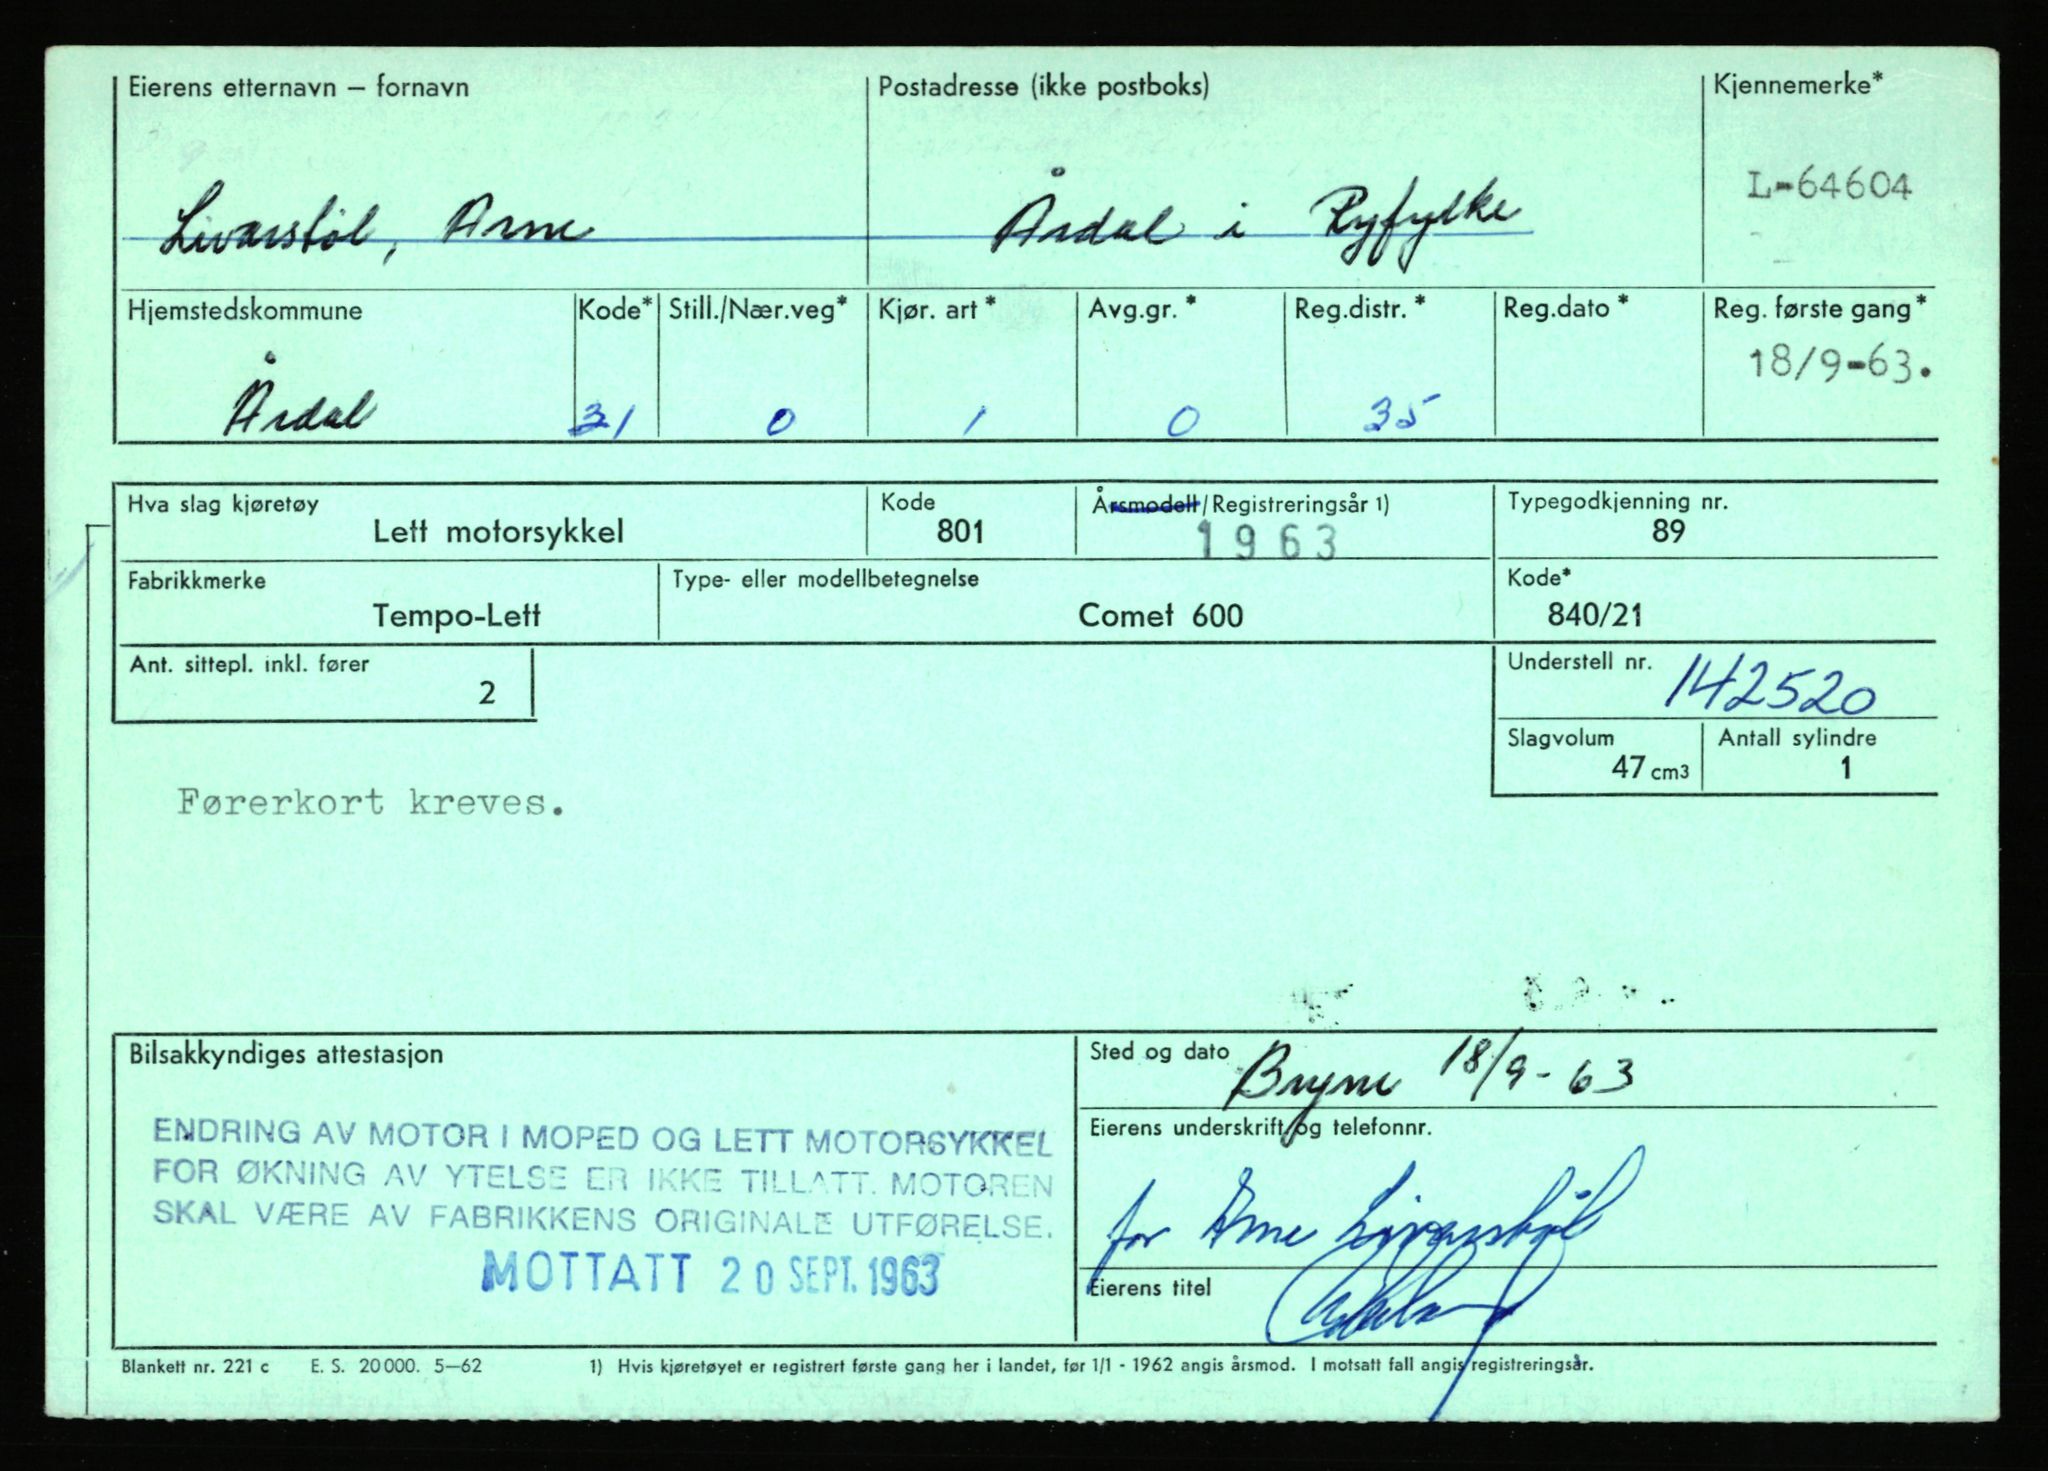 Eierens etternavn – fornavn Postadresse (ikke postboks) Kjennemerke*
L-64604
Livarstøl, Arne Årdal i Ryfylke
Hjemstedskommune Kode* Still./Nær.veg* Kjør. art* Avg.gr.* Reg.distr.* Reg.dato* Reg. første gang*
18/9-63.
Årdal 31 0 1 0 35
Hva slag kjøretøy Kode Årsmodell/Registreringsår 1) Typegodkjenning nr.
Lett motorsykkel 801 1963 89
Fabrikkmerke Type- eller modellbetegnelse Kode*
Tempo-Lett Comet 600 840/21
Ant. sittepl. inkl. fører Understell nr. 142520
2
Slagvolum Antall sylindre
47 cm3 1
Førerkort kreves.
Bilsakkyndiges attestasjon Sted og dato Bryne 18/9-63
ENDRING AV MOTOR I MOPED OG LETT MOTORSYKKEL
FOR ØKNING AV YTELSE ER IKKE TILLATT. MOTOREN
SKAL VÆRE AV FABRIKKENS ORIGINALE UTFØRELSE.
MOTTATT 20 SEPT. 1963
Eierens underskrift og telefonnr.
for Arne Livarstøl
Eierens titel
Blankett nr. 221 c E. S. 20000. 5–62 1) Hvis kjøretøyet er registrert første gang her i landet, før 1/1 - 1962 angis årsmod. I motsatt fall angis registreringsår.